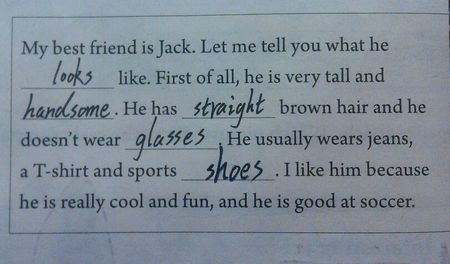 My best friend is Jack. Let me tell you what he
looks like. First of all, he is very tall and
handsome. He has straight brown hair and he
doesn't wear glasses. He usually wears jeans,
a T-shirt and sports shoes. I like him because
he is really cool and fun, and he is good at soccer.